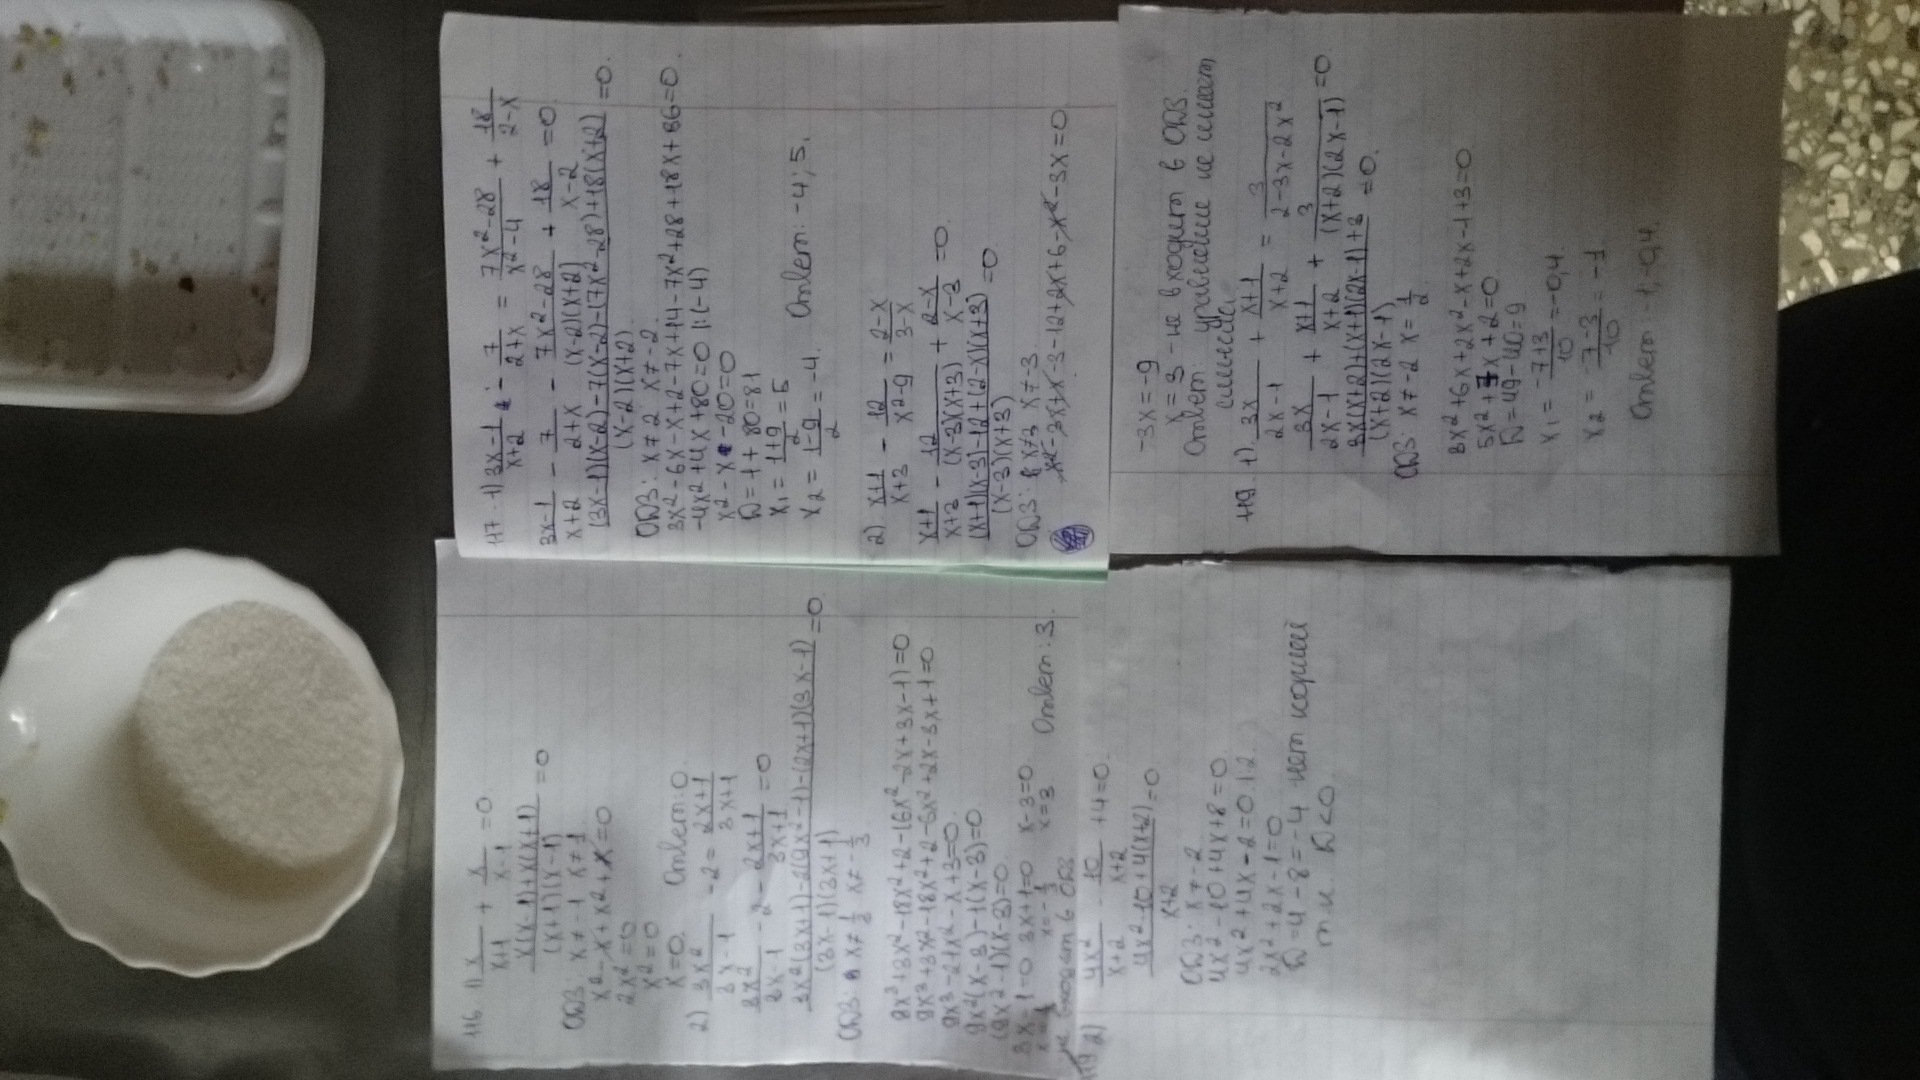 116 1) x/(x+1) + x/(x-1) = 0
(x(x-1)+x(x+1))/((x+1)(x-1)) = 0
ОДЗ: x≠-1 x≠1
x²-x+x²+x=0
2x²=0
x²=0
x=0. Ответ: 0.
2) 3x²/(3x-1) - 2 = (2x+1)/(3x+1)
3x²/(3x-1) - 2 - (2x+1)/(3x+1) = 0
(3x²(3x+1)-2(9x²-1)-(2x+1)(3x-1))/((3x-1)(3x+1)) = 0
ОДЗ: x≠1/3 x≠-1/3
9x³+3x²-18x²+2-(6x²-2x+3x-1)=0
9x³+3x²-18x²+2-6x²+2x-3x+1=0
9x³-21x²-x+3=0
9x²(x-3)-1(x-3)=0
(9x²-1)(x-3)=0
3x-1=0 3x+1=0 x-3=0
x=-1/3 x=3 Ответ: 3.
не входят в ОДЗ
119 2) 4x²/(x+2) - 10/(x+2) + 4 = 0.
(4x²-10+4(x+2))/(x+2) = 0
ОДЗ: x≠-2
4x²-10+4x+8=0
4x²+4x-2=0 |:2
2x²+2x-1=0
D=4-8=-4 нет корней
т.к. D<0.
117. 1) (3x-1)/(x+2) - 7/(2+x) = (7x²-28)/(x²-4) + 18/(2-x)
(3x-1)/(x+2) - 7/(2+x) - (7x²-28)/((x-2)(x+2)) + 18/(x-2) = 0
((3x-1)(x-2)-7(x-2)-(7x²-28)+18(x+2))/((x-2)(x+2)) = 0.
ОДЗ: x≠2 x≠-2
3x²-6x-x+2-7x+14-7x²+28+18x+36=0.
-4x²+4x+80=0 |:(-4)
x²-x-20=0
D=1+80=81
x₁=(1+9)/2=5
x₂=(1-9)/2=-4. Ответ: -4; 5.
2) (x+1)/(x+3) - 12/(x²-9) = (2-x)/(3-x)
(x+1)/(x+3) - 12/((x-3)(x+3)) + (2-x)/(x-3) = 0.
((x+1)(x-3)-12+(2-x)(x+3))/((x-3)(x+3)) = 0
ОДЗ: x≠3 x≠-3
x²-3x+x-3-12+2x+6-x²-3x=0
-3x=-9
x=3 - не входит в ОДЗ.
Ответ: уравнение не имеет
смысла.
119. 1) 3x/(2x-1) + (x+1)/(x+2) = 3/(2-3x-2x²)
3x/(2x-1) + (x+1)/(x+2) + 3/((x+2)(2x-1)) = 0
(3x(x+2)+(x+1)(2x-1)+3)/((x+2)(2x-1)) = 0.
ОДЗ: x≠-2 x=1/2
3x²+6x+2x²-x+2x-1+3=0
5x²+7x+2=0
D=49-40=9
x₁=(-7+3)/10=-0,4
x₂=(-7-3)/10=-1
Ответ -1; -0,4.